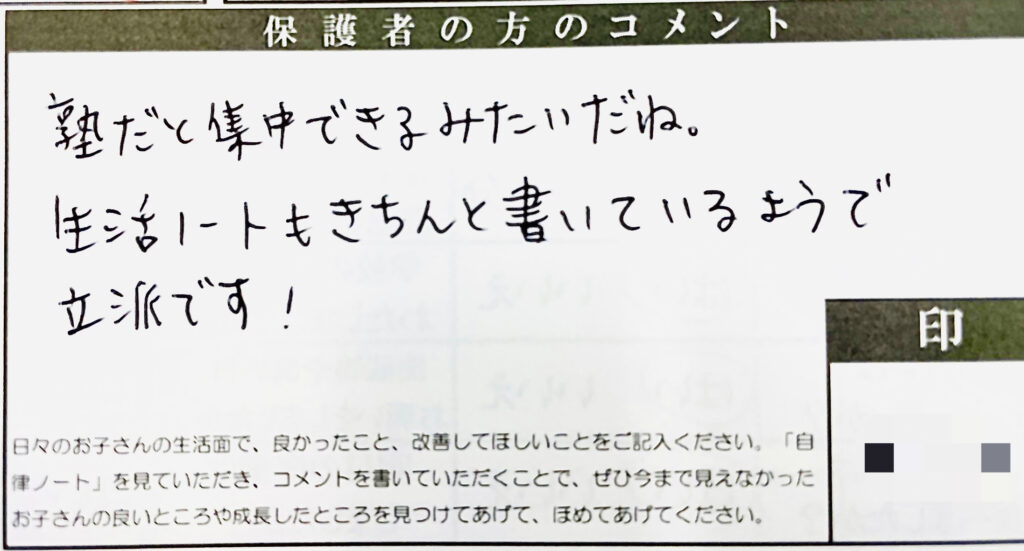 保護者の方のコメント
塾だと集中できるみたいだね。
生活ノートもきちんと書いているようで
立派です！
印
日々のお子さんの生活面で、良かったこと、改善してほしいことをご記入ください。「自
律ノート」を見ていただき、コメントを書いていただくことで、ぜひ今まで見えなかった
お子さんの良いところや成長したところを見つけてあげて、ほめてあげてください。